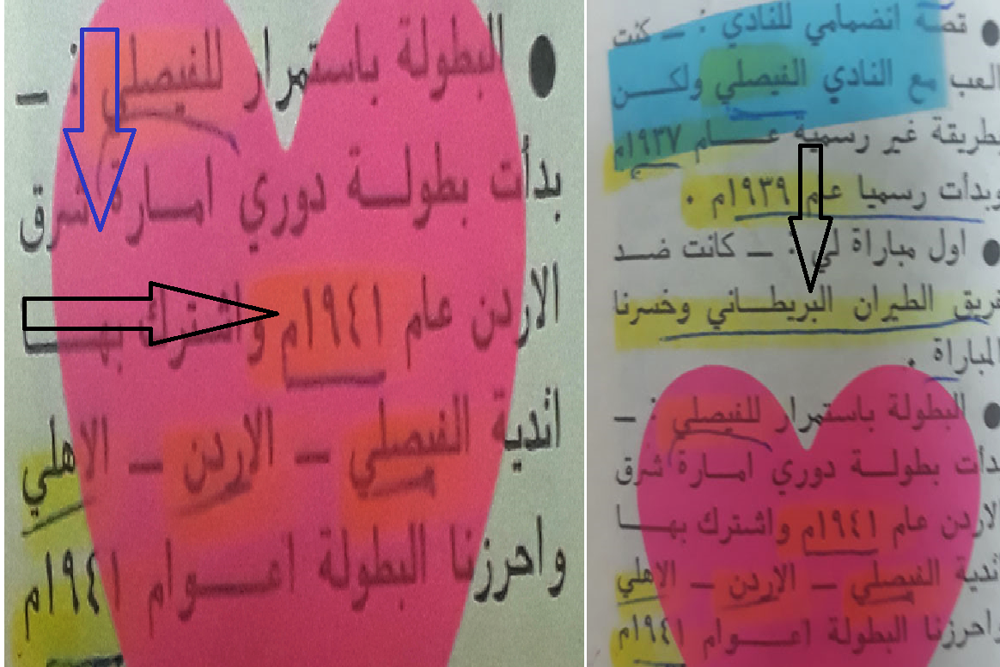 ● البطولة باستمرار للفيصلي : —
بدأت بطولة دوري امارة شرق
الاردن عام ١٩٤١م واشترك بها
اندية الفيصلي — الاردن — الاهلي
واحرزنا البطولة اعوام ١٩٤١م
● قصة انضمامي للنادي : — كنت
العب مع النادي الفيصلي ولكن
بطريقة غير رسمية عام ١٩٣٧م
وبدأت رسميا عام ١٩٣٩م .
● اول مباراة لي : — كانت ضد
فريق الطيران البريطاني وخسرنا
المباراة .
● البطولة باستمرار للفيصلي : —
بدأت بطولة دوري امارة شرق
الاردن عام ١٩٤١م واشترك بها
اندية الفيصلي — الاردن — الاهلي
واحرزنا البطولة اعوام ١٩٤١م